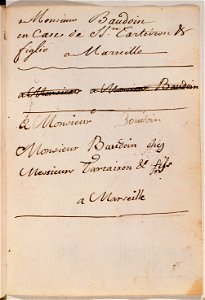 a Monsieur Baudoin
en Cases de Sr. Tarteiron &
figlio
a Marseille
a Monsieur a Monsieur Baudoin
a Monsieur Baudoin
Monsieur Baudoin chez
Messieurs Tarzairon & fils
a Marseille